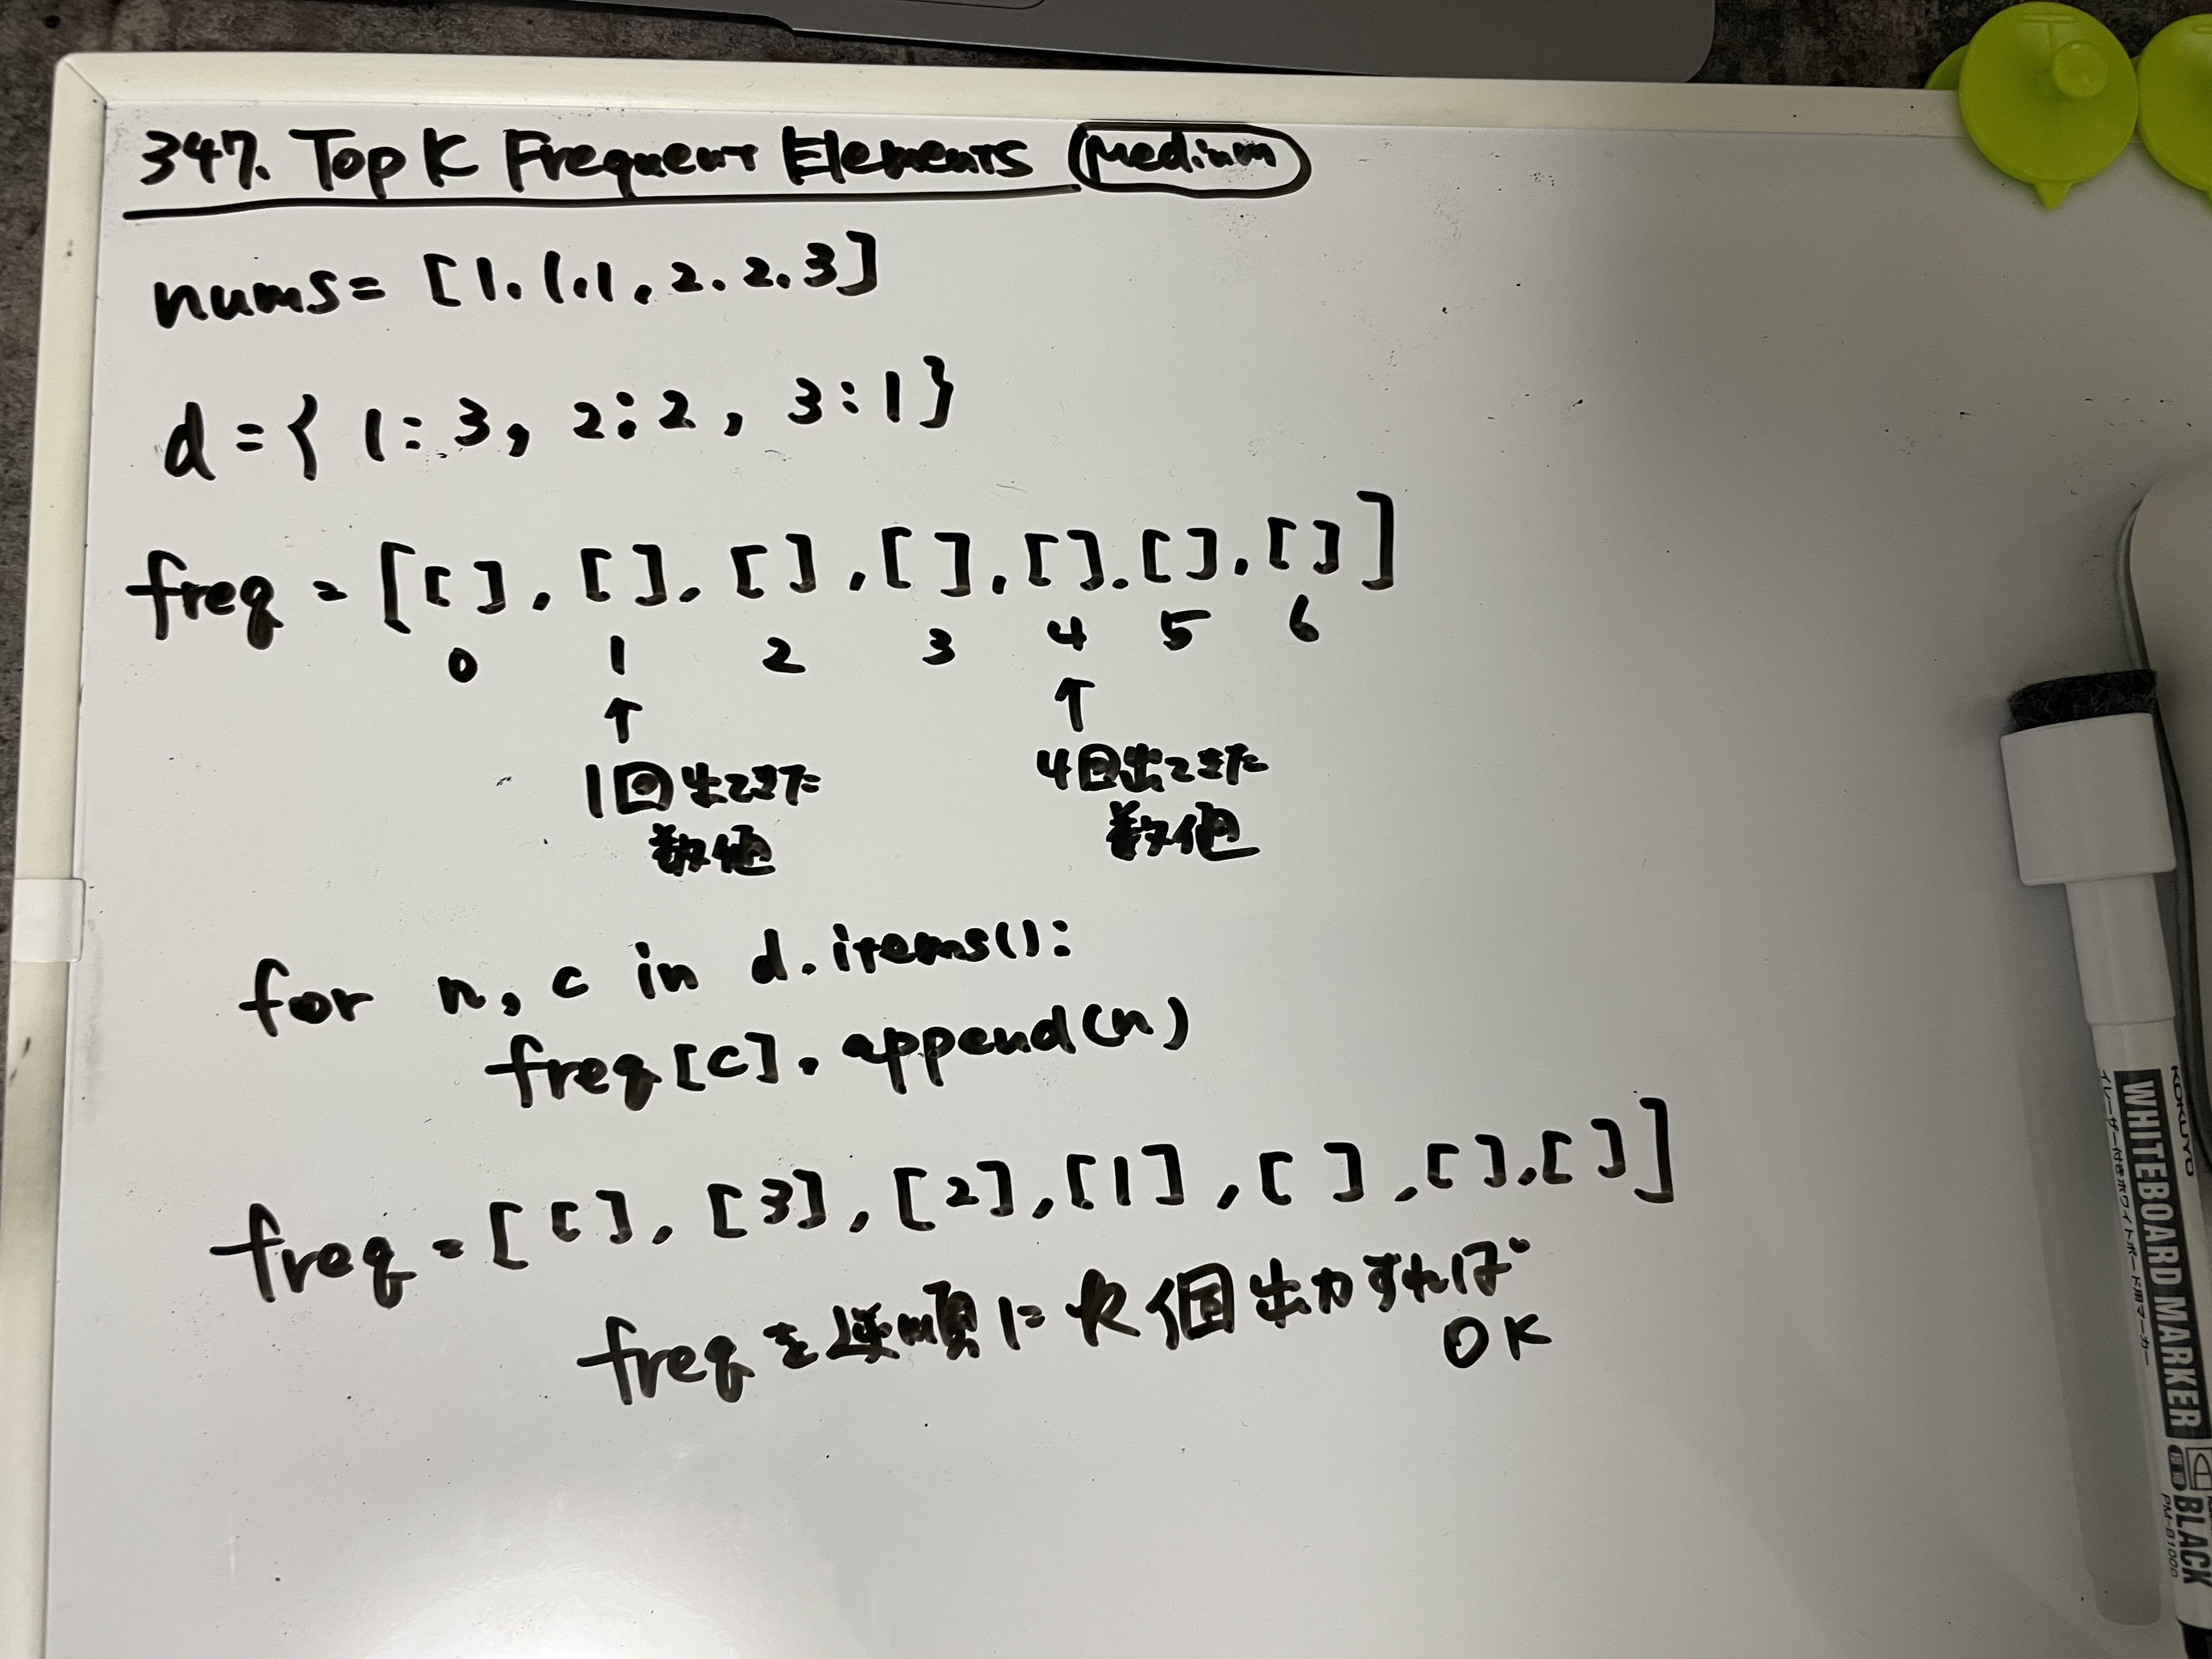 347. Top K Frequent Elements (Medium)
nums = [1.1.1, 2.2.3]
d = { 1:3, 2:2, 3:1}
freq = [[], []. [], [], []. []. []]
0 1 2 3 4 5 6
↑ ↑
1回出てきた
数値
4回出てきた
数値
for n, c in d.items():
freq[c].append(n)
freq = [[], [3], [2], [1], [], [], []]
freqを逆順にk個出力すれば
OK
KOKUYO
イレーザー付きホワイトボード用マーカー
WHITEBOARD MARKER
BLACK
PM-B1000